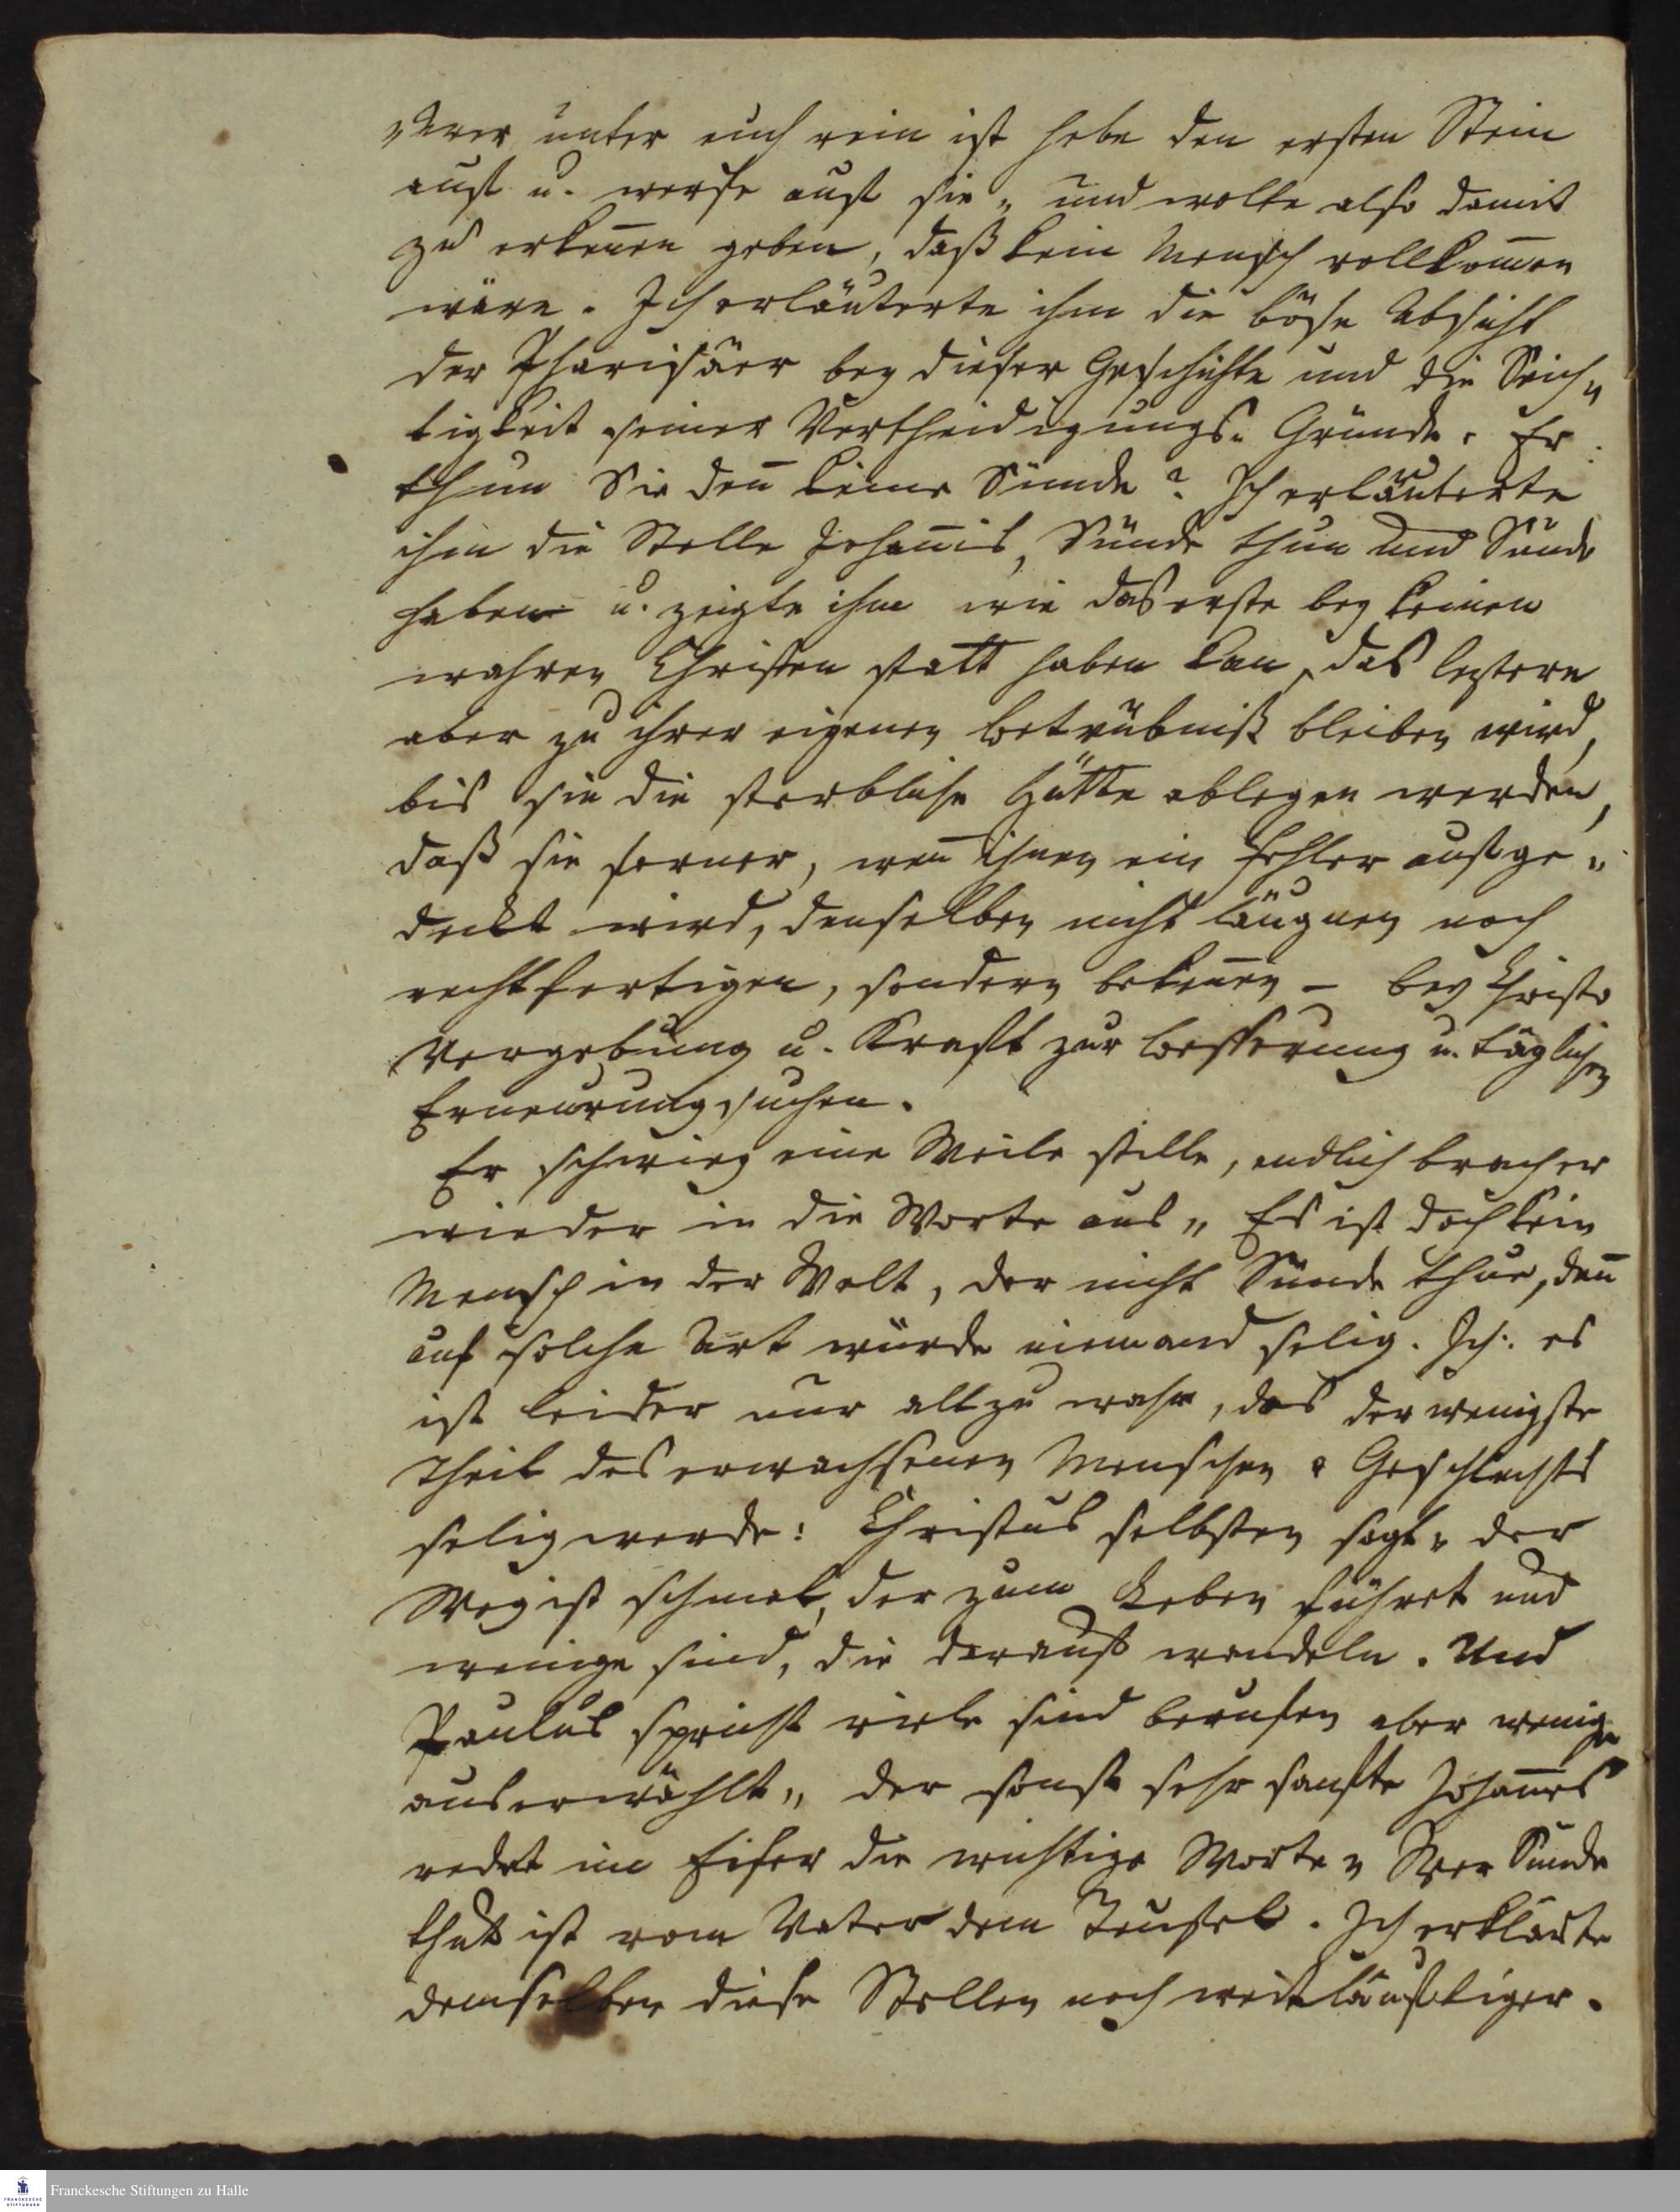 „Wer unter euch rein ist hebe den ersten Stein
auf u. werfe auf sie„ und wolte also damit
zu erkeñen geben, daß kein Mensch vollkom̄en
wäre. Ich erläuterte ihm die böse Absicht
der Pharisäer bey dieser Geschichte und die Seich„
tigkeit seiner Vertheidigungs„ Gründe. Er:
thun Sie deñ keine Sünde? Ich erläuterte
ihm die Stelle Johañis, Sünde thun und Sünde
haben u. zeigte ihm wie das erste bey keinen
wahren Christen statt haben kan, das leztere
aber zu ihrer eigenen Betrübniß bleiben wird,
bis sie die sterbliche Hütte ablegen werden,
daß sie ferner, weñ ihnen ein Fehler aufge„
deckt wird, denselben nicht läugnen noch
rechtfertigen, sondern bekeñen – bey Christo
Vergebung u. Kraft zur Besserung u. täglichen
Erneurung suchen.
Er schwieg eine Weile stille, endlich brach er
wieder in die Worte aus„ Es ist doch kein
Mensch in der Welt, der nicht Sünde thue, deñ
auf solche Art würde niemand selig. Ich: es
ist leider nur allzu wahr, das der wenigste
Theil des erwachsenen Menschen „ Geschlechts
selig werde: Christus selbsten sagt„ der
Weg ist schmal, der zum Leben führet und
wenige sind, die darauf wandeln. Und
Paulus spricht viele sind berufen aber wenige
auserwählt„ der sonst sehr sanfte Johañes
redet im Eifer die wichtige Worte„ Wer Sünde
thut ist vom Vater dem Teufel. Ich erklärte
demselben diese Stellen noch weitläuftiger.
Franckesche Stiftungen zu Halle
FRANCKESCHE
STIFTUNGEN